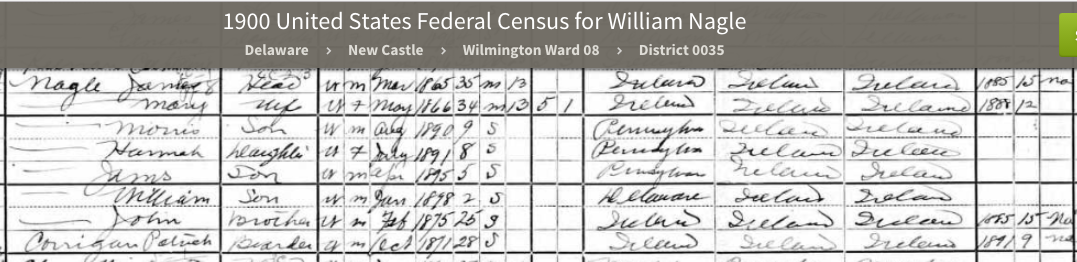 1900 United States Federal Census for William Nagle
Delaware › New Castle › Wilmington Ward 08 › District 0035
Nagle James Head W m Mar 1865 35 m 13 Ireland Ireland Ireland 1885 15 na
— Mary Wife W f May 1866 34 m 13 5 1 Ireland Ireland Ireland 1888 12
— Morris Son W m Aug 1890 9 S Pennsylvan Ireland Ireland
— Hannah Daughter W f July 1891 8 S Pennsylvan Ireland Ireland
— Jams Son W m Apr 1895 5 S Pennsylvan Ireland Ireland
— William Son W m Jan 1898 2 S Delaware Ireland Ireland
— John Brother W m Feb 1875 25 S Ireland Ireland Ireland 1885 15 Na
Corrigan Patrick Boarder W m Oct 1871 28 S Ireland Ireland Ireland 1891 9 na